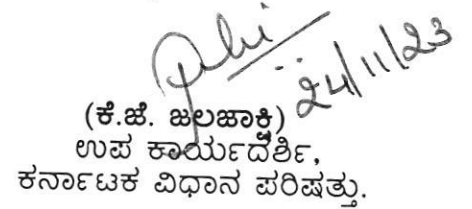 24/11/23
(ಕೆ.ಜೆ. ಜಲಜಾಕ್ಷಿ)
ಉಪ ಕಾರ್ಯದರ್ಶಿ,
ಕರ್ನಾಟಕ ವಿಧಾನ ಪರಿಷತ್ತು.